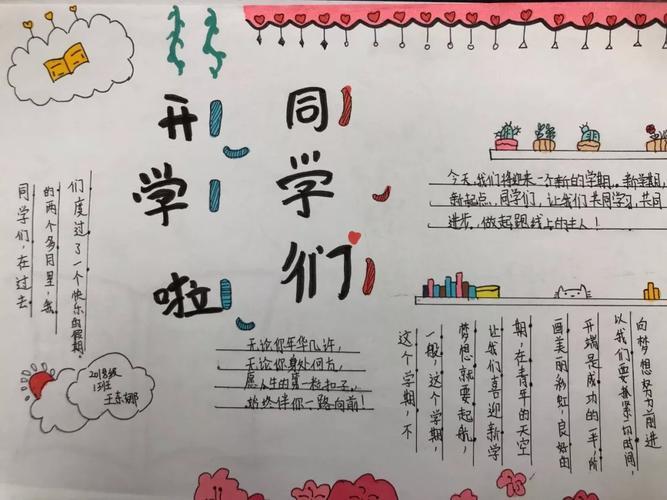 同学们
开学啦
同学们，在过去
的两个多月里，我
们度过了一个快乐的假期。
今天，我们将迎来一个新的学期。新学期，
新起点，同学们，让我们共同学习，共同
进步，做起跑线上的主人！
无论你年华几许，
无论你身处何方，
愿人生的第一粒扣子，
始终伴你一路向前！
这个学期，不
一般，这个学期，
梦想就要起航，
让我们喜迎新学
期，在青年的天空
画美丽彩虹，良好的
开端是成功的一半，所
以我们要抓紧一切时间，
向梦想努力前进
2018级
1班
王东娜